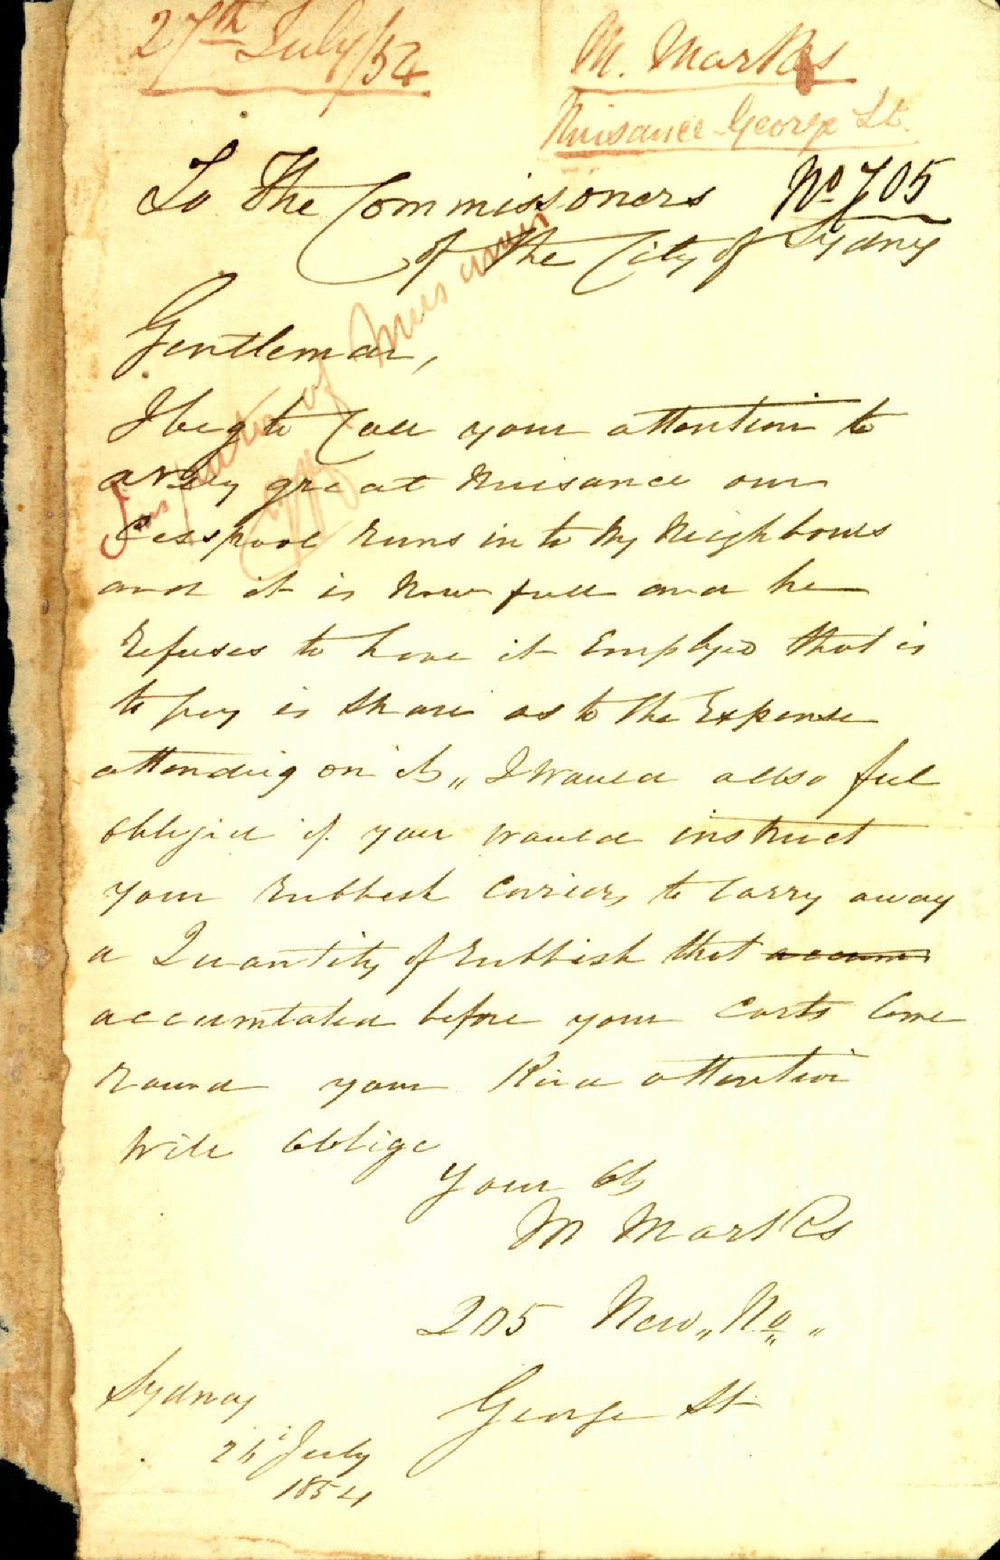 27th July/54
M. Marks
Nuisance George St.
No 705
To The Commissoners
of the City of Sydny
Inspector of Nuisances
Gentleman,
I beg to Call your attention to
a Very great Nuisance our
Cesspool Runs in to My Neighbours
and it is Now full and he
Refuses to have it Emptyed that is
to pay is Share as to the Expense
attending on it,, I Would allso feel
obliged if you would instruct
your Rubbish Carriers to Carry away
a Quantity of Rubbish that accum
accumtated before your Carts Come
Round your Kind attention
Will Oblige
Your Ob
M Marks
205 New,, No,,
George St
Sydney
July
1854